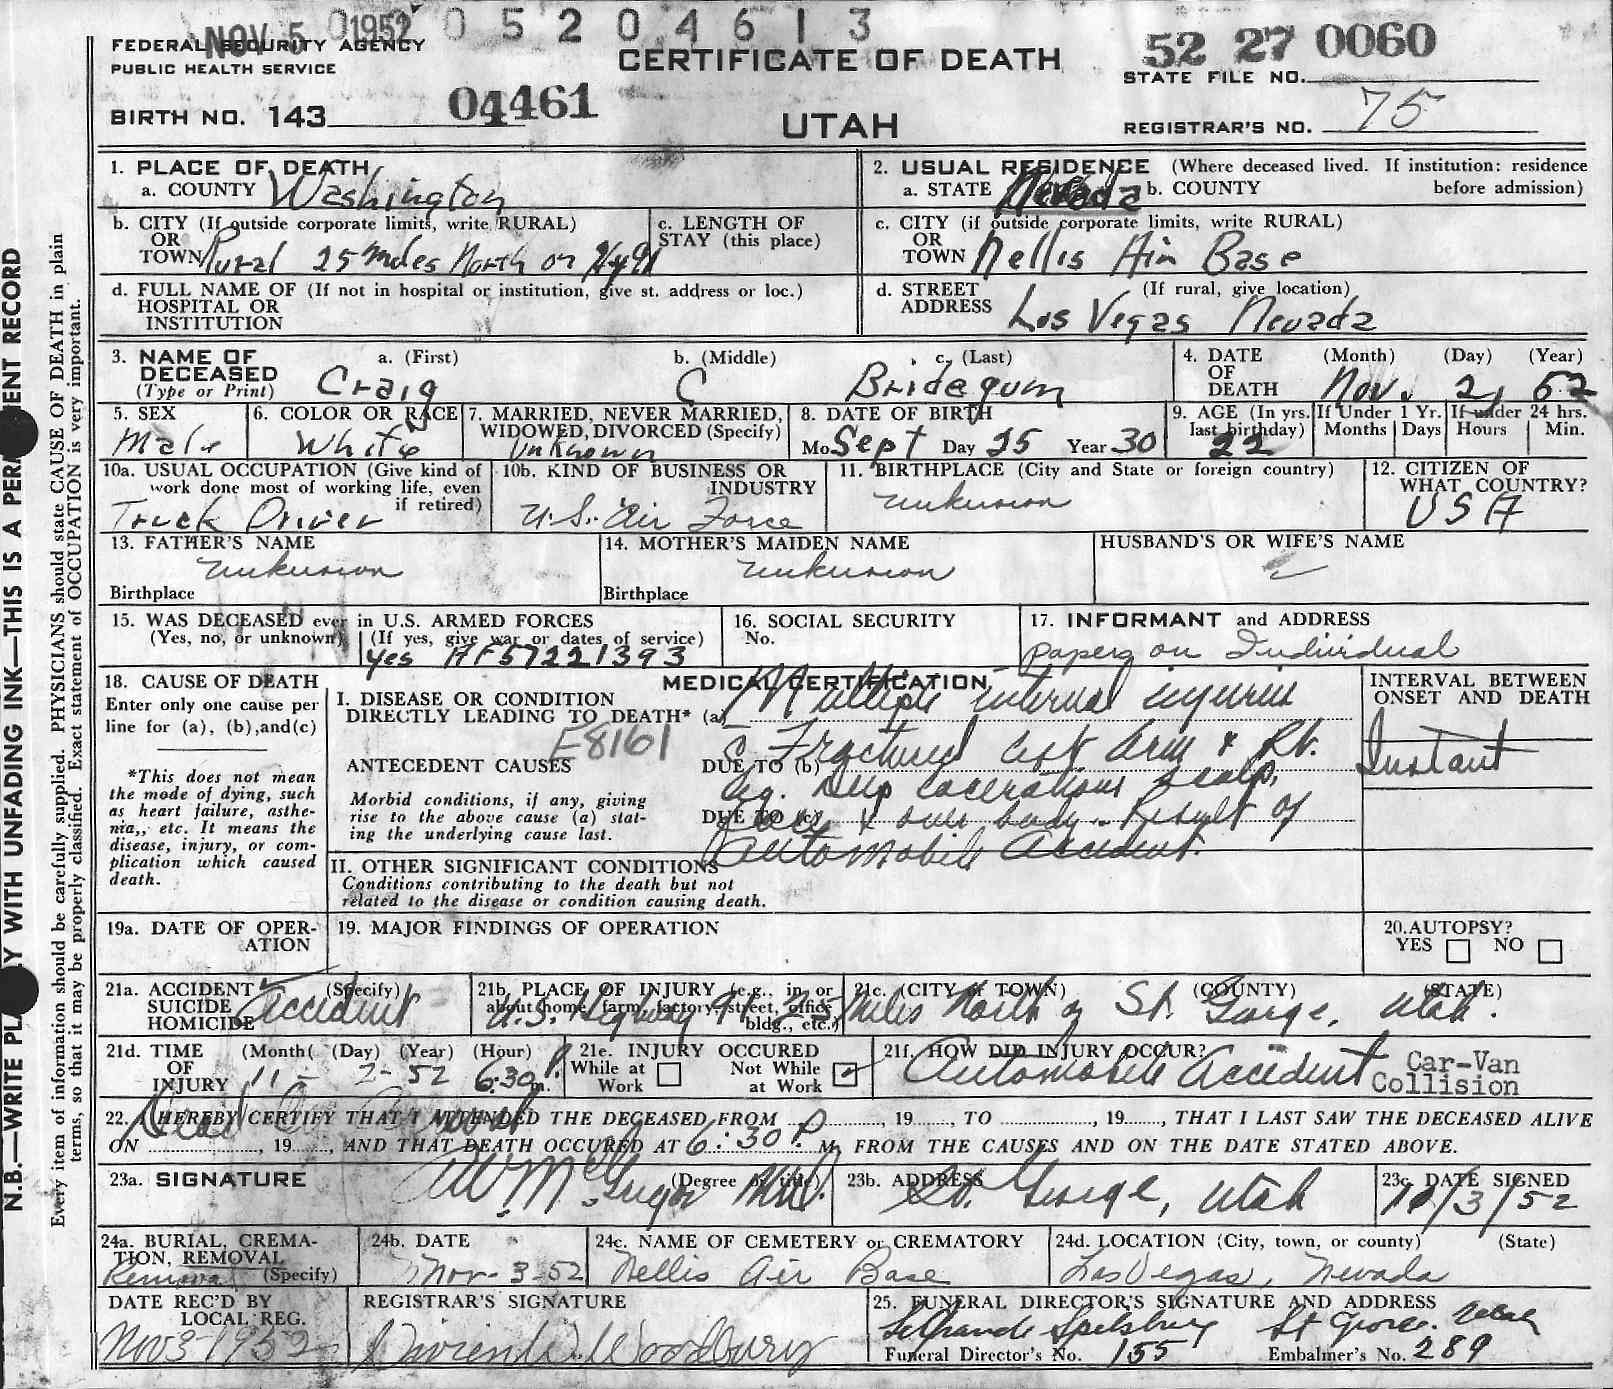 NOV 5 1952 0 5 2 0 4 6 1 3
FEDERAL SECURITY AGENCY
PUBLIC HEALTH SERVICE
CERTIFICATE OF DEATH
UTAH
52 27 0060
STATE FILE NO.
BIRTH NO. 143 04461
REGISTRAR'S NO. 75
1. PLACE OF DEATH
a. COUNTY Washington
2. USUAL RESIDENCE (Where deceased lived. If institution: residence before admission)
a. STATE Nevada b. COUNTY
b. CITY (If outside corporate limits, write RURAL) OR TOWN Rural 25 miles North on Hy 91
c. LENGTH OF STAY (this place)
c. CITY (if outside corporate limits, write RURAL) OR TOWN Nellis Air Base
d. FULL NAME OF (If not in hospital or institution, give st. address or loc.) HOSPITAL OR INSTITUTION
d. STREET ADDRESS (If rural, give location) Las Vegas Nevada
3. NAME OF DECEASED (Type or Print)
a. (First) Craig b. (Middle) C c. (Last) Bridegum
4. DATE OF DEATH (Month) (Day) (Year) Nov. 2, 52
5. SEX Male
6. COLOR OR RACE White
7. MARRIED, NEVER MARRIED, WIDOWED, DIVORCED (Specify) Unknown
8. DATE OF BIRTH Mo Sept Day 25 Year 30
9. AGE (In yrs. last birthday) 22
If Under 1 Yr. Months Days
If under 24 hrs. Hours Min.
10a. USUAL OCCUPATION (Give kind of work done most of working life, even if retired) Truck Driver
10b. KIND OF BUSINESS OR INDUSTRY U.S. Air Force
11. BIRTHPLACE (City and State or foreign country) unknown
12. CITIZEN OF WHAT COUNTRY? USA
13. FATHER'S NAME unknown
Birthplace
14. MOTHER'S MAIDEN NAME unknown
Birthplace
HUSBAND'S OR WIFE'S NAME
15. WAS DECEASED ever in U.S. ARMED FORCES
(Yes, no, or unknown) (If yes, give war or dates of service)
yes AF57221393
16. SOCIAL SECURITY No.
17. INFORMANT and ADDRESS
papers on Individual
18. CAUSE OF DEATH
Enter only one cause per line for (a), (b),and(c)
*This does not mean the mode of dying, such as heart failure, asthenia,, etc. It means the disease, injury, or complication which caused death.
MEDICAL CERTIFICATION
I. DISEASE OR CONDITION DIRECTLY LEADING TO DEATH* (a) Multiple internal injuries
E8161
ANTECEDENT CAUSES DUE TO (b) c Fractured left arm & Rt.
leg. Deep lacerations scalp,
Morbid conditions, if any, giving rise to the above cause (a) stating the underlying cause last.
DUE TO (c) face & over body. Result of
Automobile Accident.
II. OTHER SIGNIFICANT CONDITIONS
Conditions contributing to the death but not related to the disease or condition causing death.
INTERVAL BETWEEN ONSET AND DEATH
Instant
19a. DATE OF OPERATION
19. MAJOR FINDINGS OF OPERATION
20.AUTOPSY? YES NO
21a. ACCIDENT SUICIDE HOMICIDE (Specify) Accident
21b. PLACE OF INJURY (e.g., in or about home, farm, factory, street, office bldg., etc.)
21c. (CITY OR TOWN) (COUNTY) (STATE)
U.S. Highway 91 25 Miles North of St. George, Utah.
21d. TIME OF INJURY (Month( (Day) (Year) (Hour) 11- 2- 52 6:30 P. m.
21e. INJURY OCCURED While at Work Not While at Work ✓
21f. HOW DID INJURY OCCUR? Automobile Accident Car-Van Collision
22. I HEREBY CERTIFY THAT I ATTENDED THE DECEASED FROM , 19 , TO , 19 , THAT I LAST SAW THE DECEASED ALIVE
ON , 19 , AND THAT DEATH OCCURED AT 6:30 P. M, FROM THE CAUSES AND ON THE DATE STATED ABOVE.
23a. SIGNATURE (Degree or title) AW McGregor M.D.
23b. ADDRESS St. George, Utah
23c. DATE SIGNED 11/3/52
24a. BURIAL, CREMATION, REMOVAL (Specify) Removal
24b. DATE Nov-3-52
24c. NAME OF CEMETERY or CREMATORY Nellis Air Base
24d. LOCATION (City, town, or county) (State) Las Vegas, Nevada
DATE REC'D BY LOCAL REG. Nov 3-1952
REGISTRAR'S SIGNATURE Woodbury
25. FUNERAL DIRECTOR'S SIGNATURE AND ADDRESS
Spilsbury St George. Utah
Funeral Director's No. 155 Embalmer's No. 289
N.B.—WRITE PLAINLY WITH UNFADING INK—THIS IS A PERMANENT RECORD
Every item of information should be carefully supplied. PHYSICIANS should state CAUSE OF DEATH in plain
terms, so that it may be properly classified. Exact statement of OCCUPATION is very important.